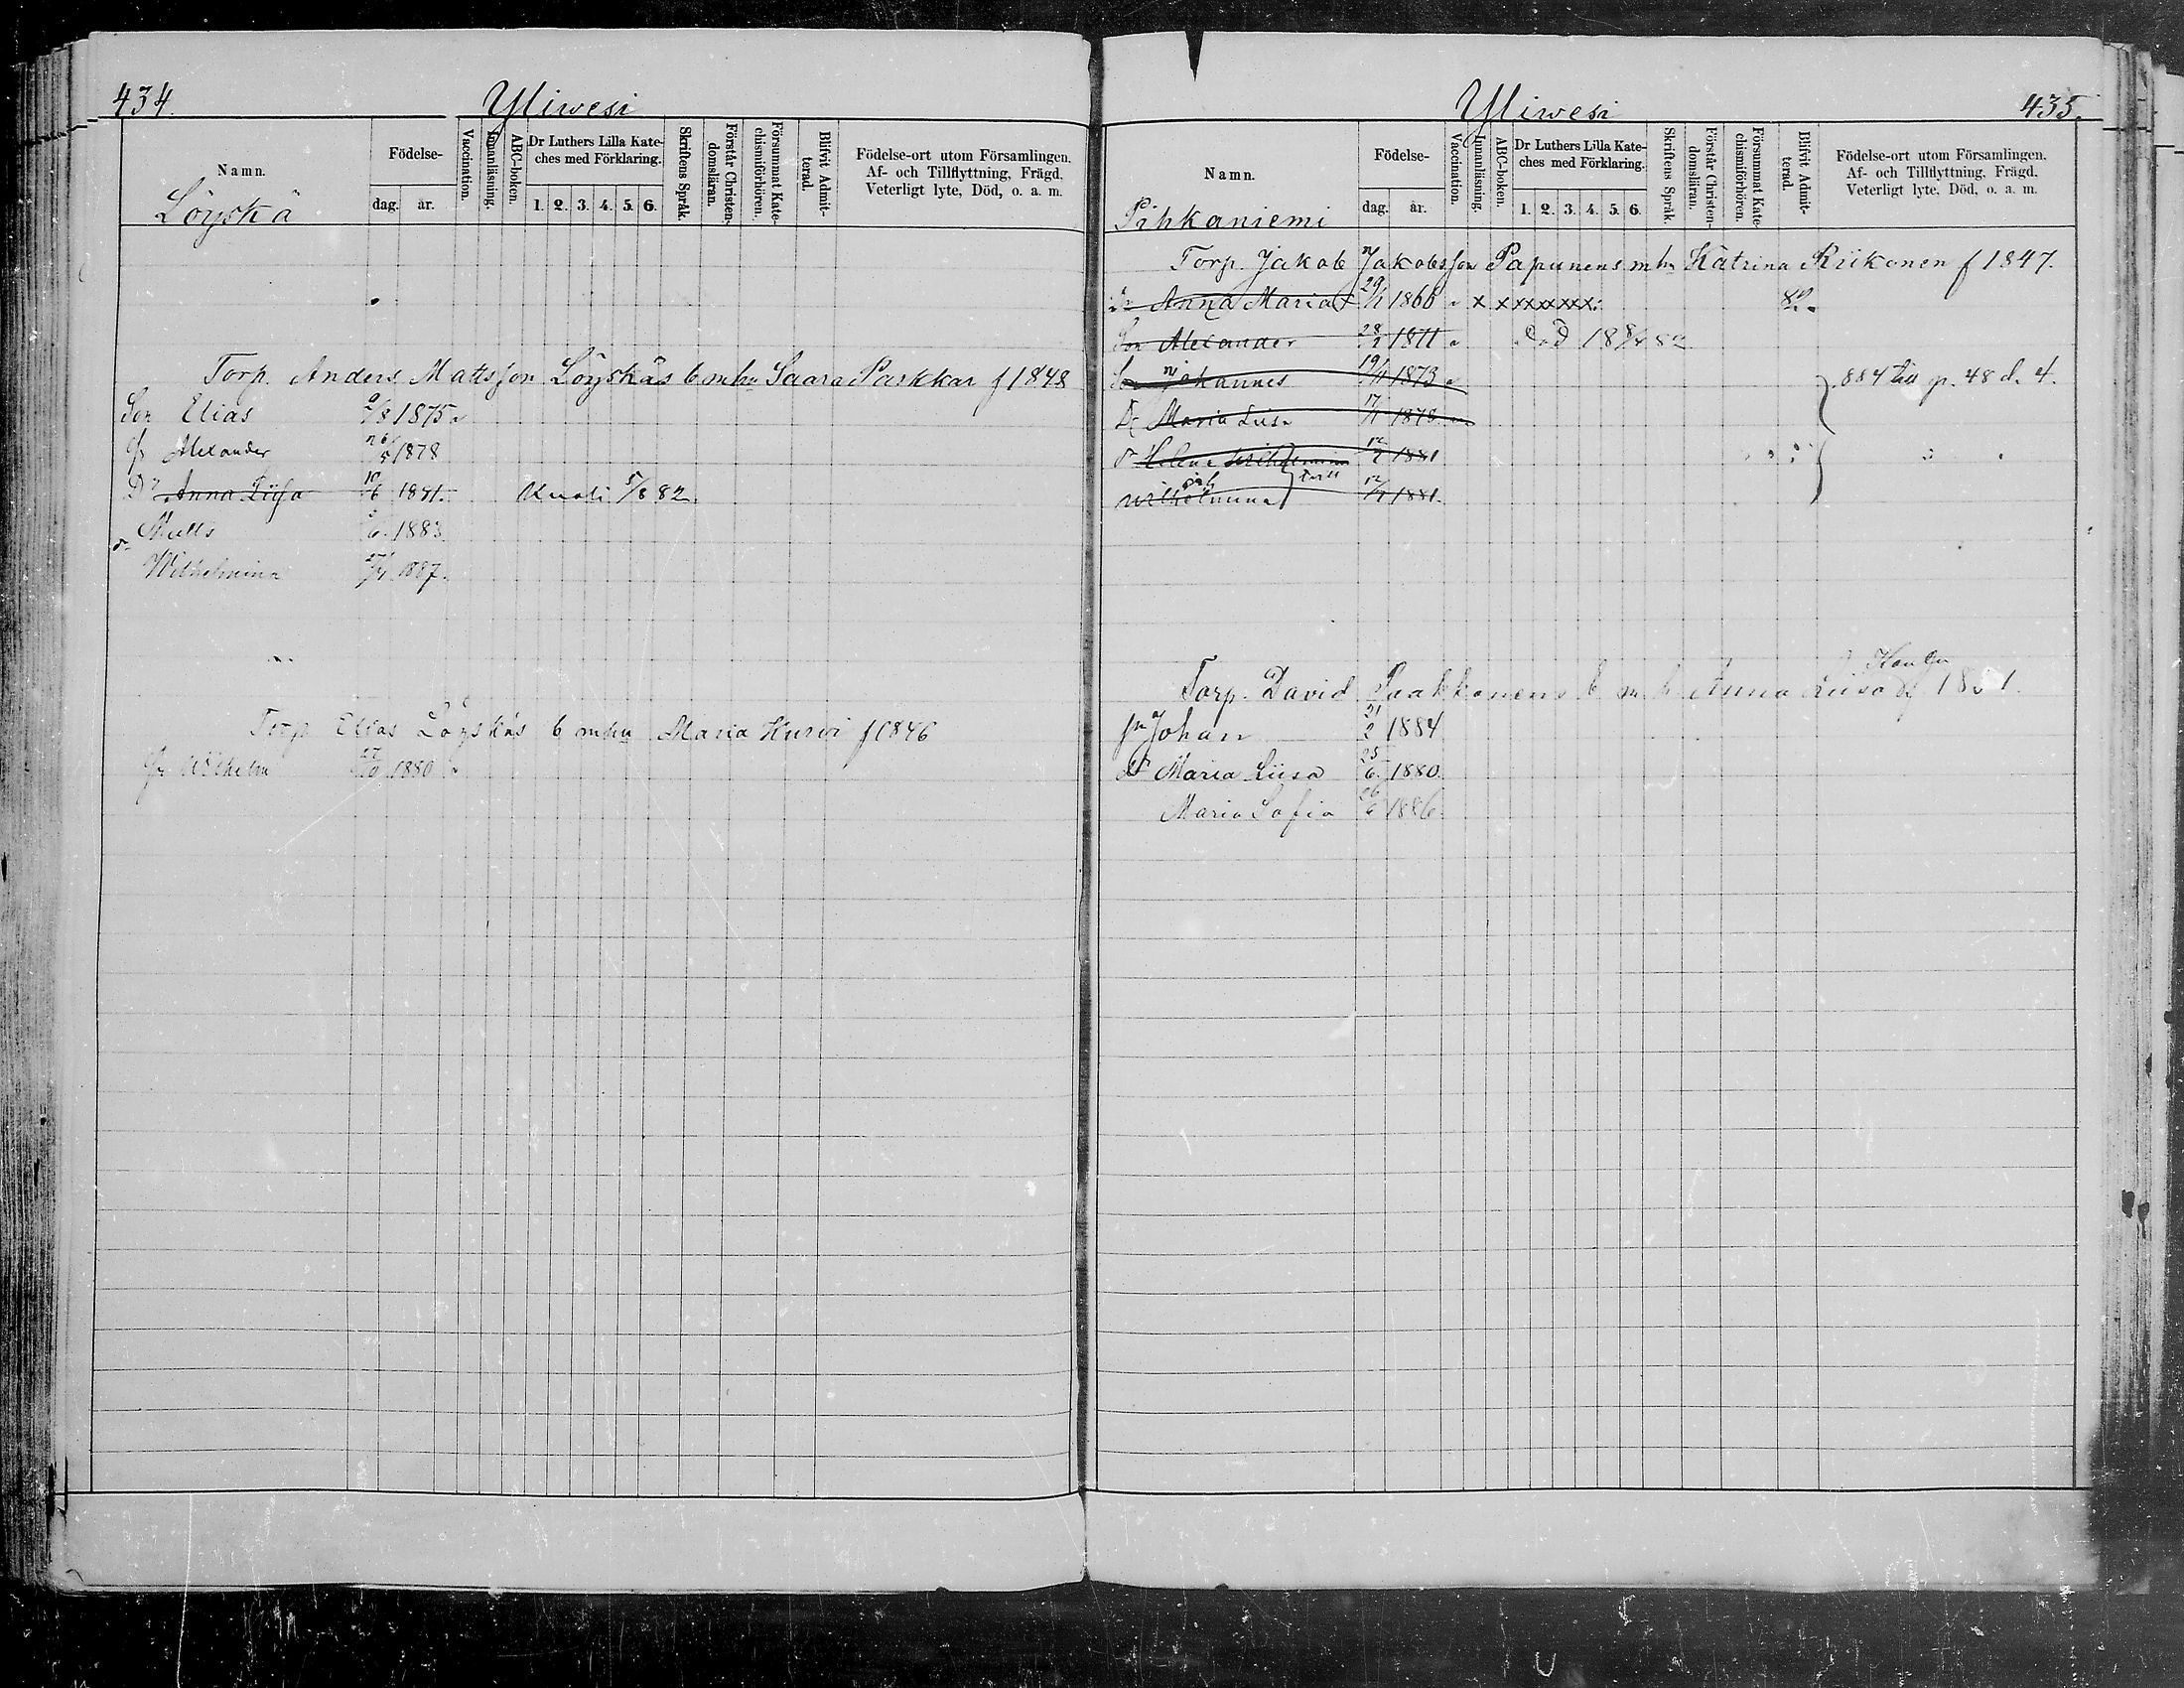 434.
Yliwesi
Namn.
Födelse-
dag. år.
Vaccination.
Innanläsning.
ABC-boken.
Dr Luthers Lilla Kate-
ches med Förklaring.
1. 2. 3. 4. 5. 6.
Skriftens Språk.
Förstår Christen-
domsläran.
Försummat Kate-
chismiförhören.
Blifvit Admit-
terad.
Födelse-ort utom Församlingen.
Af- och Tillflyttning, Frägd,
Veterligt lyte, Död, o. a. m.
Löyskä
Torp. Anders Mattsson Löyskäs b mhu Saara Parkkar f 1848
Son Elias 9/8 1875
Alexander 26/5 1878
Dr Anna Liisa 10/6 1881. Kuoli 5/8 82.
Matts 6. 1883
Wilhelmina 1887.
Torp Elias Löyskäs b mhu Maria Hurvi f 1846
Wilhelm 27/10 1880
Yliwesi
435.
Namn.
Födelse-
dag. år.
Vaccination.
Innanläsning.
ABC-boken.
Dr Luthers Lilla Kate-
ches med Förklaring.
1. 2. 3. 4. 5. 6.
Skriftens Språk.
Förstår Christen-
domsläran.
Försummat Kate-
chismiförhören.
Blifvit Admit-
terad.
Födelse-ort utom Församlingen.
Af- och Tillflyttning, Frägd,
Veterligt lyte, Död, o. a. m.
Pihkaniemi
Torp. Jakob Jakobsson Papunens mhu Katrina Riikonen f 1847.
Dr Anna Maria 29/1 1866 x x xxxxxxx
Son Alexander 1871 Död
Son Johannes 19/1 1873 884 till p. 48 d. 4.
Dr Maria Liisa 17/1 1878
Helena 12/7 1881
Wilhelmina 12/7 1881.
Torp. David Paakkanens b m h Anna Liisa
Johan 21/2 1884
dr Maria Liisa 25/6. 1880.
Maria Sofia 26/6 1886.